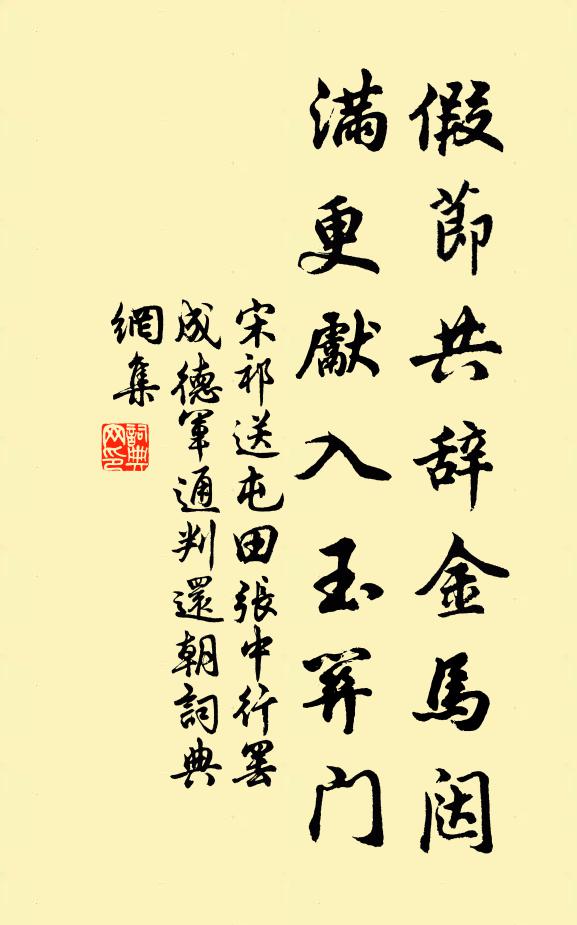 假節共辞金馬闼
滿更獻入玉关門
宋祁送屯田張中行罢
成德軍通判還朝詞典
網集
詞典
网印